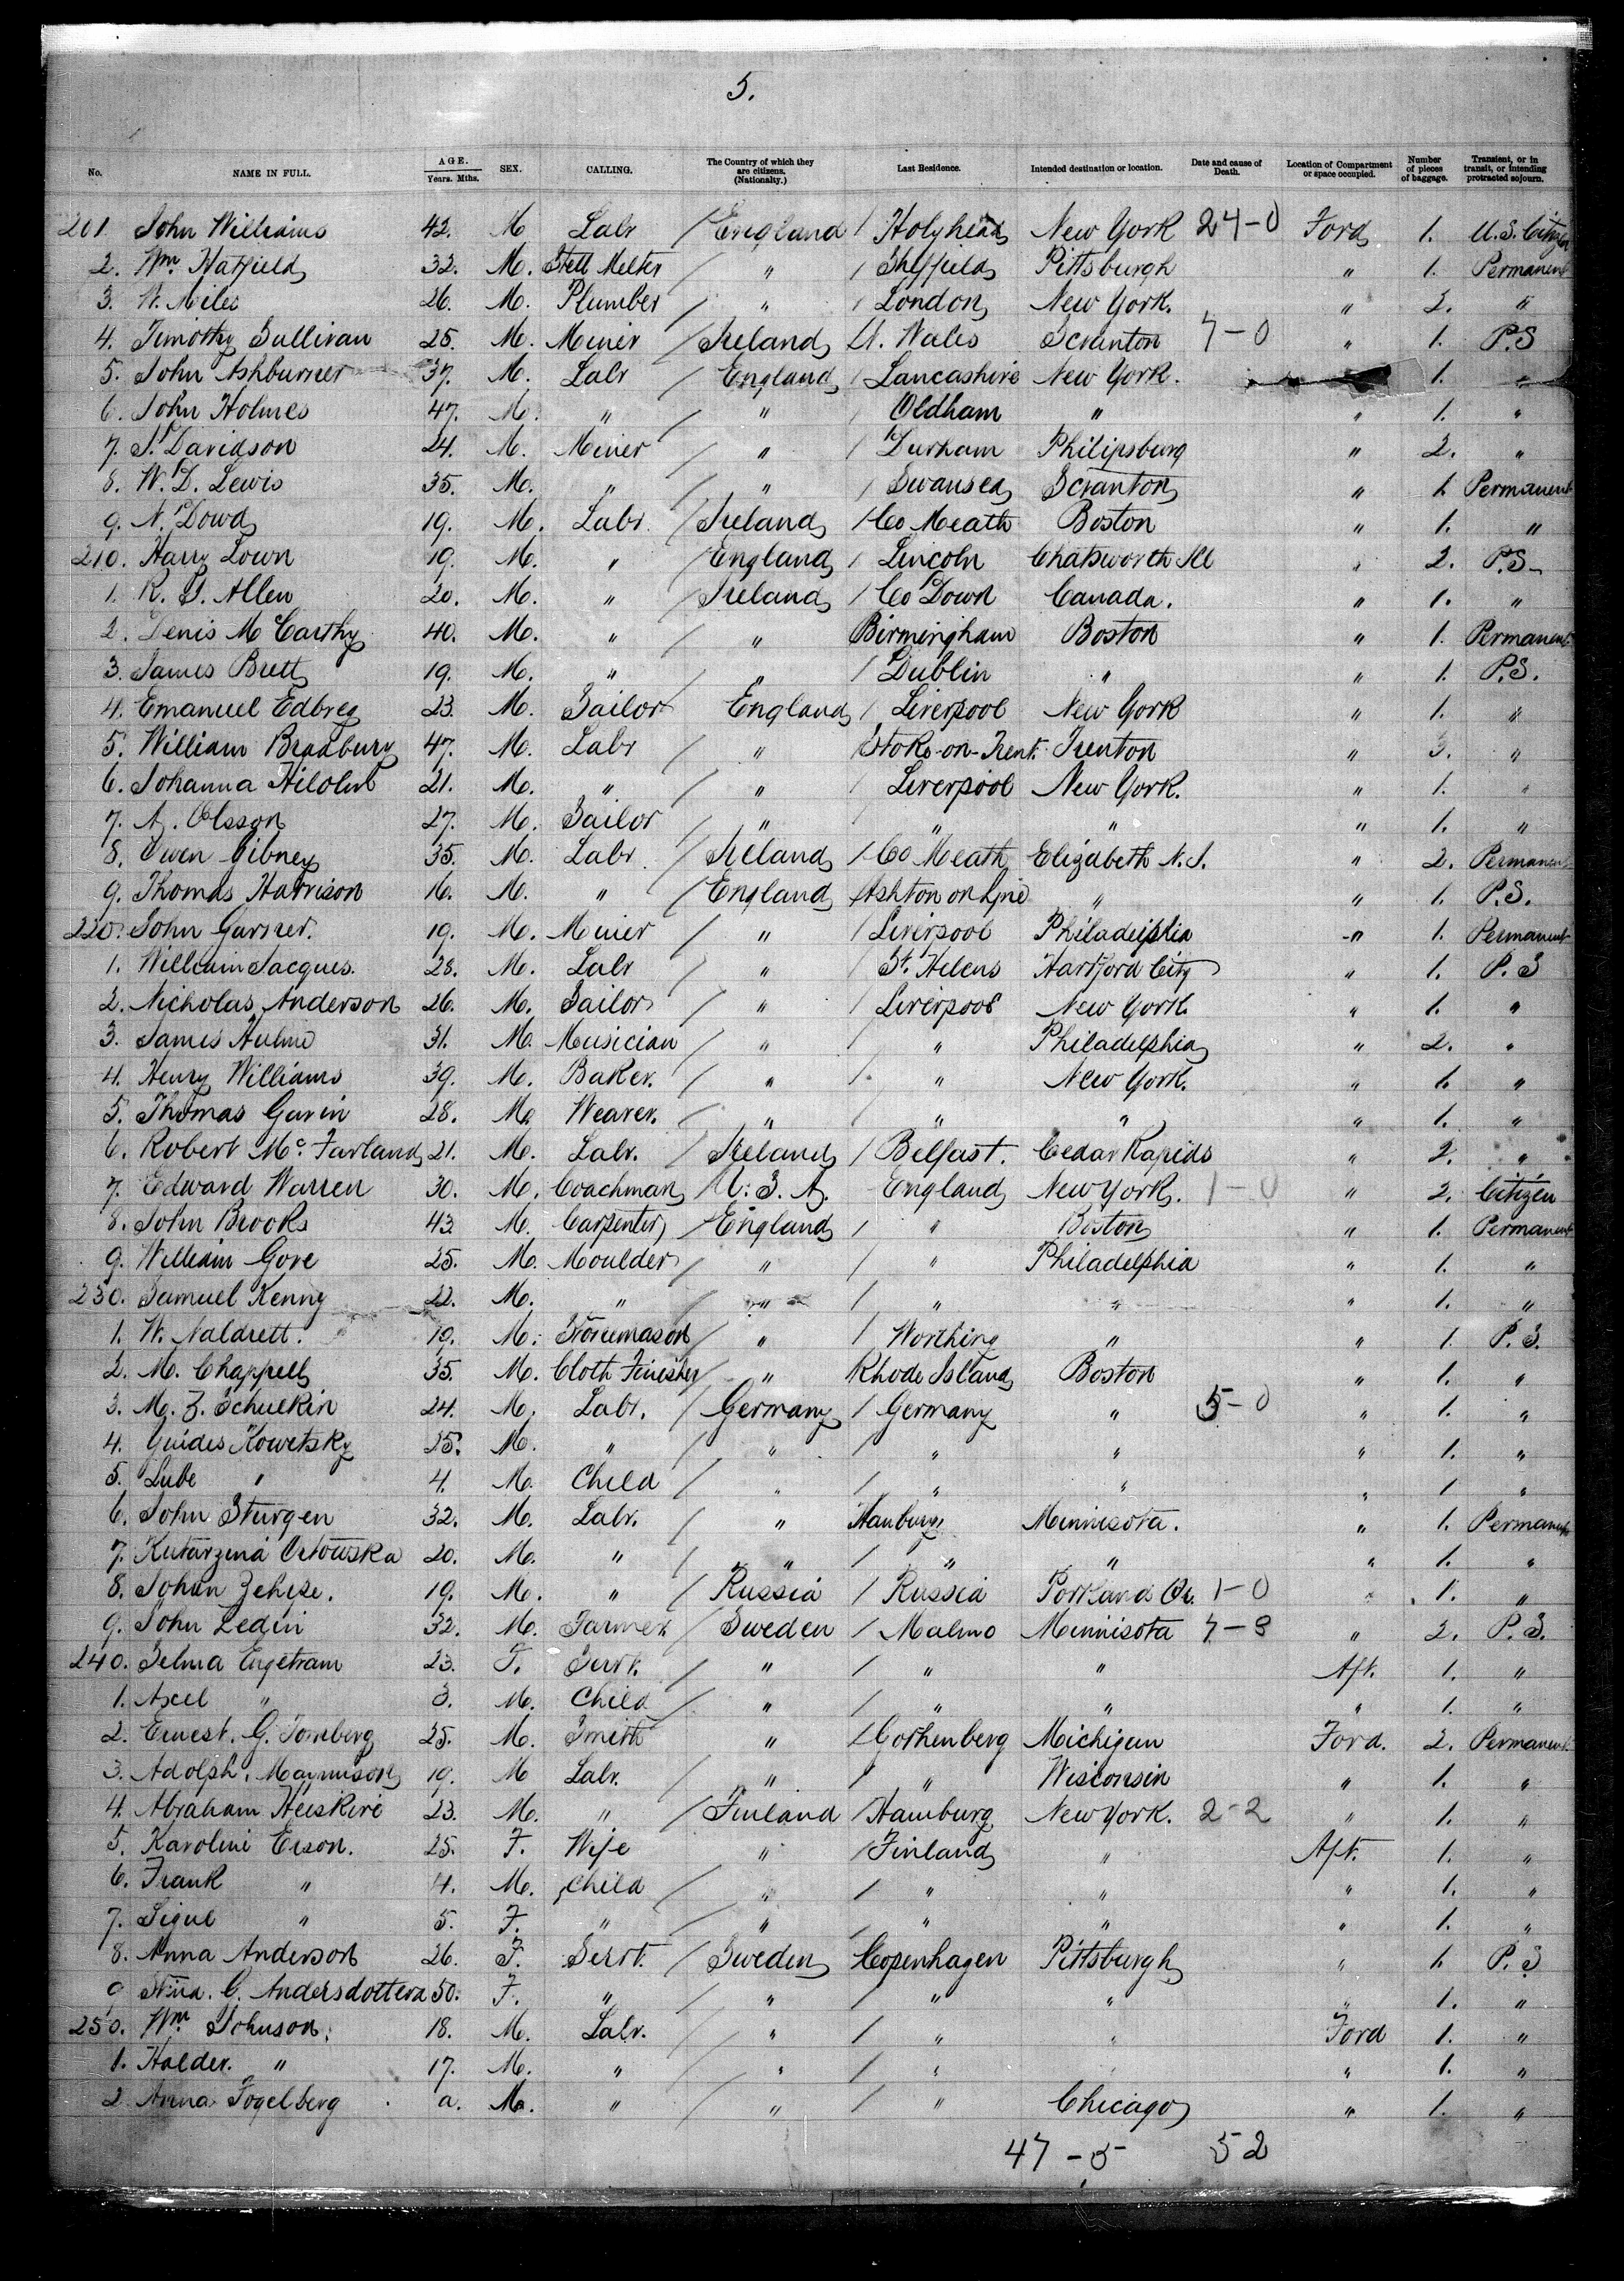 5.
No. NAME IN FULL. AGE. Years. Mths. SEX. CALLING. The Country of which they are citizens. (Nationalty.) Last Residence. Intended destination or location. Date and cause of Death. Location of Compartment or space occupied. Number of pieces of baggage. Transient, or in transit, or intending protracted sojourn.
201 John Williams 42. M Labr / England / Holyhead New York 24-0 Ford 1. U.S. Citizen
2. Wm Hatfield 32. M. Stell Melter / " / Sheffield Pittsburgh " 1. Permanent
3. W. Miles 26. M. Plumber / " / London New York. " 2. "
4. Timothy Sullivan 25. M. Minier / Ireland / N. Wales Scranton 7-0 " 1. P.S
5. John Ashburner 37. M. Labr / England / Lancashire New York. 1. "
6. John Holmes 47. M. " / " / Oldham " " 1. "
7. S. Davidson 24. M. Minier / " / Durham Philipsburg " 2. "
8. W. D. Lewis 35. M. " / " / Swansea Scranton " 1. Permanent
9. N. Dowd 19. M. Labr. / Ireland / Co Meath Boston " 1. "
210. Harry Lown 19. M. " / England / Lincoln Chatsworth Ill " 2. P.S-
1. R. J. Allen 20. M. " / Ireland / Co Down Canada. " 1. "
2. Denis Mc Carthy 40. M. " / " Birmingham Boston " 1. Permanent
3. James Brett 19. M. " / " / Dublin " " 1. P.S.
4. Emanuel Edbreg 23. M. Sailor England / Liverpool New York " 1. "
5. William Bradbury 47. M. Labr / " / Stoke-on-Trent. Trenton " 3. "
6. Johanna 21. M. " / " / Liverpool New York. " 1. "
7. A. Olsson 27. M. Sailor / " / " " " 1. "
8. Owen Gibney 35. M. Labr. / Ireland / Co Meath Elizabeth N.J. " 2. Permanent
9. Thomas Harrison 16. M. " / England / Ashton on Lyne " " 1. P.S.
220. John Garner. 19. M. Minier / " / Liverpool Philadelphia " 1. Permanent
1. William Jacques. 28. M. Labr / " / St. Helens Hartford City " 1. P.S
2. Nicholas Anderson 26. M. Sailor / " / Liverpool New York. " 1. "
3. James Hulme 31. M. Musician / " / " Philadelphia " 2. "
4. Henry Williams 39. M. Baker. / " / " New York. " 1. "
5. Thomas Gavin 28. M. Weaver. / " / " " " 1. "
6. Robert Mc. Farland 21. M. Labr. / Ireland / Belfast. Cedar Rapids " 2. "
7. Edward Warren 30. M. Coachman U.S.A. England New York. 1-0 " 2. Citizen
8. John Brooks 43 M. Carpenter / England / " Boston " 1. Permanent
9. William Gore 25. M. Moulder / " / " Philadelphia " 1. "
230. Samuel Kenny 22. M. " / " / " " " 1. "
1. W. Naldrett. 19. M. Stonemason / " / Worthing " " 1. P.S.
2. M. Chappell 35. M. Cloth Finisher / " Rhode Island Boston " 1. "
3. M. Z. Schulkin 24. M. Labr. / Germany / Germany " 5-0 " 1. "
4. Guides Kowetsky 25. M. " / " / " " " 1. "
5. Lube " 4. M. Child / " / " " " 1 "
6. John Sturgen 32. M. Labr. / " Hamburg Minnisota. " 1. Permanent
7. Katarzina 20. M. " / " / " " " 1. "
8. Johan 19. M. " / Russia / Russia Portland Or. 1-0 " 1. "
9. John Ledin 32. M. Farmer / Sweden / Malmo Minnisota 7-3 " 2. P.S.
240. Selma Engstram 23. F. Servt. / " / " " Aft. 1. "
1. Axel " 3. M. Child / " / " " " 1. "
2. Ernest. G. Tornberg 25. M. Smith " / Gothenberg Michigan Ford. 2. Permanent.
3. Adolph. Magnuson 19. M Labr. / " / " Wisconsin " 1. "
4. Abraham Heiskiri 23. M. " / Finland / Hamburg New York. 2-2 " 1. "
5. Karolini Erson. 25. F. Wife " / Finland " Aft. 1. "
6. Frank " 4. M. Child / " / " " " 1. "
7. Sigul " 5. F. " / " / " " " 1. "
8. Anna Anderson 26. F. Servt. / Sweden / Copenhagen Pittsburgh " 1. P.S
9 Stina. C. Andersdottera 50. F. " / " / " " " 1. "
250. Wm Johnson. 18. M. Labr. / " / " " Ford 1. "
1. Halder. " 17. M. " / " / " " 1. "
2 Anna Fogelberg a. M. " / " / " Chicago " 1. "
47-5 52